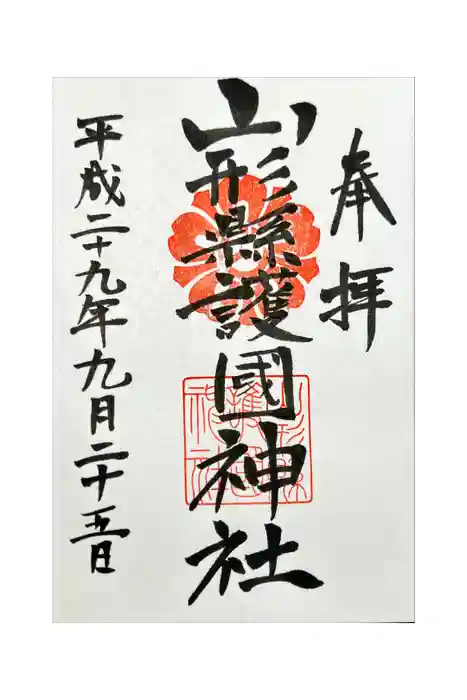 奉拝
山形縣護國神社
平成二十九年九月二十五日